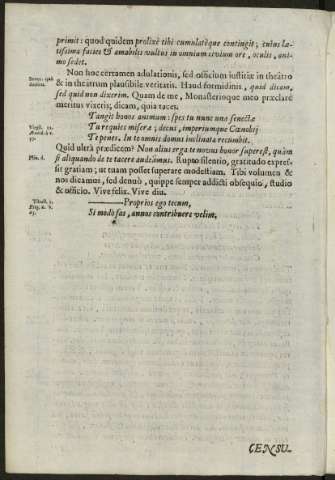 primit: quod quidem prolixè tibi cumulatéque contingit; cuius læ-
tissima facies & amabilis vultus in omnium civium ore, oculis, ani-
mo sedet.
Non hoc certamen adulationis, sed officium iustitiæ in theatro
& in theatrum plausibile veritatis. Haud formidinis, quid dicam,
sed quid non dixerim. Quam de me, Monasterioque meo præclarè
meritus vixeris; dicam, quia taces.
Tangit honos animum: spes tu nunc una senectæ
Tu requies miseræ; decus, imperiumque Cœnobij
Te penes. In te omnis domus inclinata recumbit.
Quid ultrà prædicem? Non alius erga te novus honor superest, quàm
si aliquando de te tacere audeamus. Rupto silentio, gratitudo expres-
sit gratiam; ut tuam posset superare modestiam. Tibi volumen &
nos dicamus, sed denuò, quippe semper addicti obsequio, studio
& officio. Vive felix. Vive diu.
Proprios ego tecum,
Si modò fas, annos contribuere velim.
Virgil. 12.
Æneid. à v.
57.
Plin. d.
Tibull. 1.
Eleg. 6. v.
63.
CENSU-